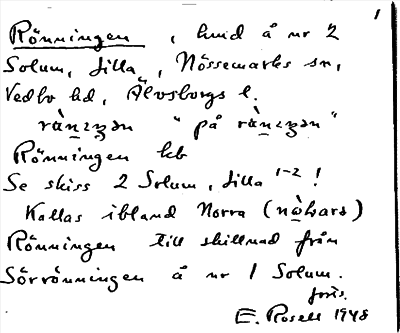 1
Rönningen, hmd å nr 2
Solum, lilla, Nössemarks sn,
Vedbo hd, Älvsborgs l.
" på
Rönningen kb
Se skiss 2 Solum, lilla 1-2!
Kallas ibland Norra
Rönningen till skillnad från
Sörrönningen å nr 1 Solum.
forts.
E. Rosell 1948